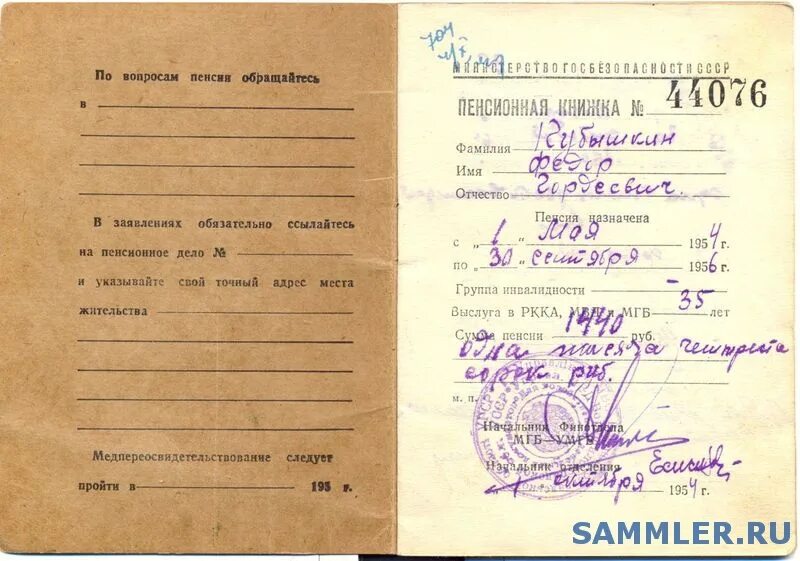 По вопросам пенсии обращайтесь
в
В заявлениях обязательно ссылайтесь
на пенсионное дело №
и указывайте свой точный адрес места
жительства
Медпереосвидетельствование следует
пройти в 195 г.
704
МИНИСТЕРСТВО ГОСБЕЗОПАСНОСТИ СССР
ПЕНСИОННАЯ КНИЖКА № 44076
Фамилия Кубышкин
Имя Федор
Отчество Гордеевич.
Пенсия назначена
с „1" Мая 1954 г.
по „30" сентября 1956 г.
Группа инвалидности —
Выслуга в РККА, МВД и МГБ 35 лет
Сумма пенсии 1440 руб.
одна тысяча четыреста
сорок руб.
м. п.
Начальник Финотдела
МГБ—УМГБ
Начальник отделения
октября 1954 г.
SAMMLER.RU